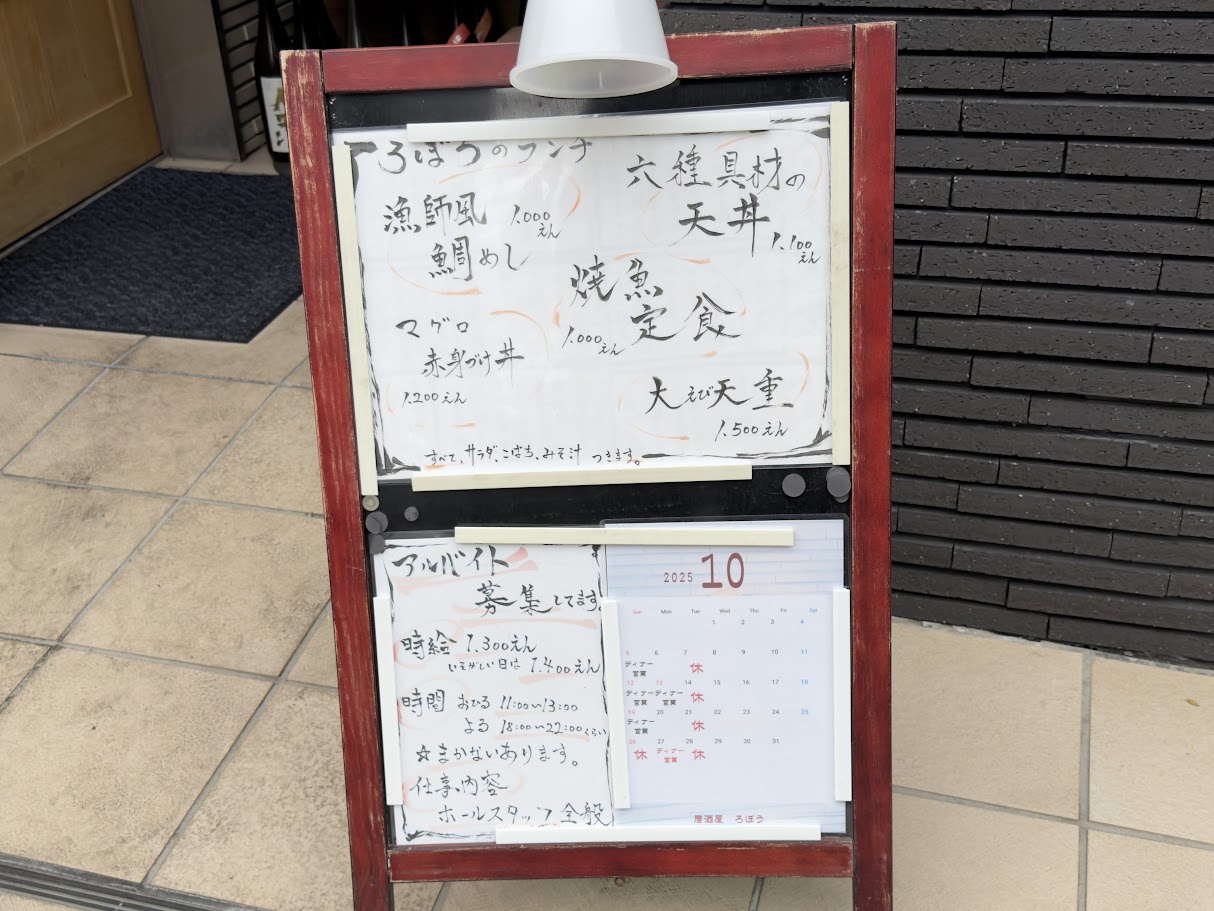 ろぼうのランチ
漁師風
鯛めし
1.000
えん
六種具材の
天丼
1.100
えん
焼魚
定食
1.000
えん
マグロ
赤身づけ丼
1.200えん
大えび天重
1.500えん
すべて、サラダ、こばち、みそ汁 つきます。
アルバイト
募集してます。
時給 1.300えん
いそがしい日は 1.400えん
時間 おひる 11:00~13:00
よる 18:00~22:00くらい
☆まかないあります。
仕事内容
ホールスタッフ全般
2025 10
Sun Mon Tue Wed Thu Fri Sat
1 2 3 4
5 6 7 8 9 10 11
ディナー営業 休
12 13 14 15 16 17 18
ディナー営業 ディナー営業 休
19 20 21 22 23 24 25
ディナー営業 休
26 27 28 29 30 31
休 ディナー営業 休
居酒屋 ろぼう